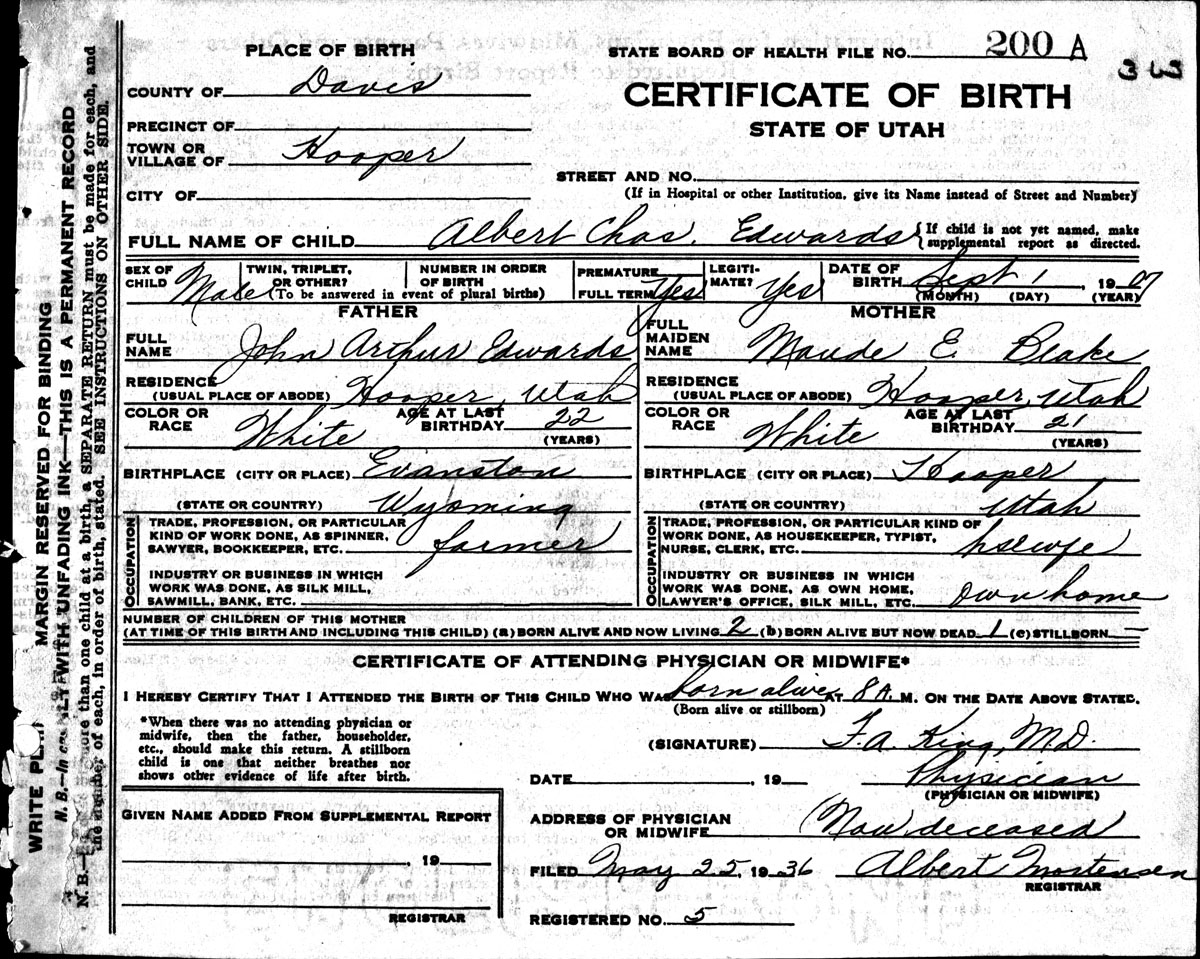 PLACE OF BIRTH
STATE BOARD OF HEALTH FILE NO. 200 A
363
COUNTY OF Davis
CERTIFICATE OF BIRTH
PRECINCT OF
STATE OF UTAH
TOWN OR VILLAGE OF Hooper
STREET AND NO.
CITY OF
(If in Hospital or other Institution, give its Name instead of Street and Number)
FULL NAME OF CHILD Albert Chas. Edwards { If child is not yet named, make supplemental report as directed.
SEX OF CHILD Male
TWIN, TRIPLET, OR OTHER?
NUMBER IN ORDER OF BIRTH
(To be answered in event of plural births)
PREMATURE
FULL TERM Yes
LEGITIMATE? Yes
DATE OF BIRTH Sept 1, 1907
(MONTH) (DAY) (YEAR)
FATHER
FULL NAME John Arthur Edwards
RESIDENCE (USUAL PLACE OF ABODE) Hooper, Utah
COLOR OR RACE White
AGE AT LAST BIRTHDAY 22 (YEARS)
BIRTHPLACE (CITY OR PLACE) Evanston
(STATE OR COUNTRY) Wyoming
OCCUPATION
TRADE, PROFESSION, OR PARTICULAR KIND OF WORK DONE, AS SPINNER, SAWYER, BOOKKEEPER, ETC. farmer
INDUSTRY OR BUSINESS IN WHICH WORK WAS DONE, AS SILK MILL, SAWMILL, BANK, ETC.
MOTHER
FULL MAIDEN NAME Maude E. Blake
RESIDENCE (USUAL PLACE OF ABODE) Hooper, Utah
COLOR OR RACE White
AGE AT LAST BIRTHDAY 21 (YEARS)
BIRTHPLACE (CITY OR PLACE) Hooper
(STATE OR COUNTRY) Utah
OCCUPATION
TRADE, PROFESSION, OR PARTICULAR KIND OF WORK DONE, AS HOUSEKEEPER, TYPIST, NURSE, CLERK, ETC. hsewfe
INDUSTRY OR BUSINESS IN WHICH WORK WAS DONE, AS OWN HOME, LAWYER'S OFFICE, SILK MILL, ETC. Own home
NUMBER OF CHILDREN OF THIS MOTHER
(AT TIME OF THIS BIRTH AND INCLUDING THIS CHILD) (a) BORN ALIVE AND NOW LIVING 2 (b) BORN ALIVE BUT NOW DEAD 1 (c) STILLBORN –
CERTIFICATE OF ATTENDING PHYSICIAN OR MIDWIFE*
I HEREBY CERTIFY THAT I ATTENDED THE BIRTH OF THIS CHILD WHO WAS born alive AT 8 A. M. ON THE DATE ABOVE STATED.
(Born alive or stillborn)
*When there was no attending physician or
midwife, then the father, householder,
etc., should make this return. A stillborn
child is one that neither breathes nor
shows other evidence of life after birth.
(SIGNATURE) F. A. King, M.D.
DATE , 19 Physician
(PHYSICIAN OR MIDWIFE)
GIVEN NAME ADDED FROM SUPPLEMENTAL REPORT
, 19
REGISTRAR
ADDRESS OF PHYSICIAN OR MIDWIFE (Now deceased
FILED May 25, 1936 Albert Mortensen
REGISTRAR
REGISTERED NO. 5
MARGIN RESERVED FOR BINDING
WITH UNFADING INK—THIS IS A PERMANENT RECORD
N. B.— more than one child at a birth, a SEPARATE RETURN must be made for each, and
the number of each, in order of birth, stated. SEE INSTRUCTIONS ON OTHER SIDE.